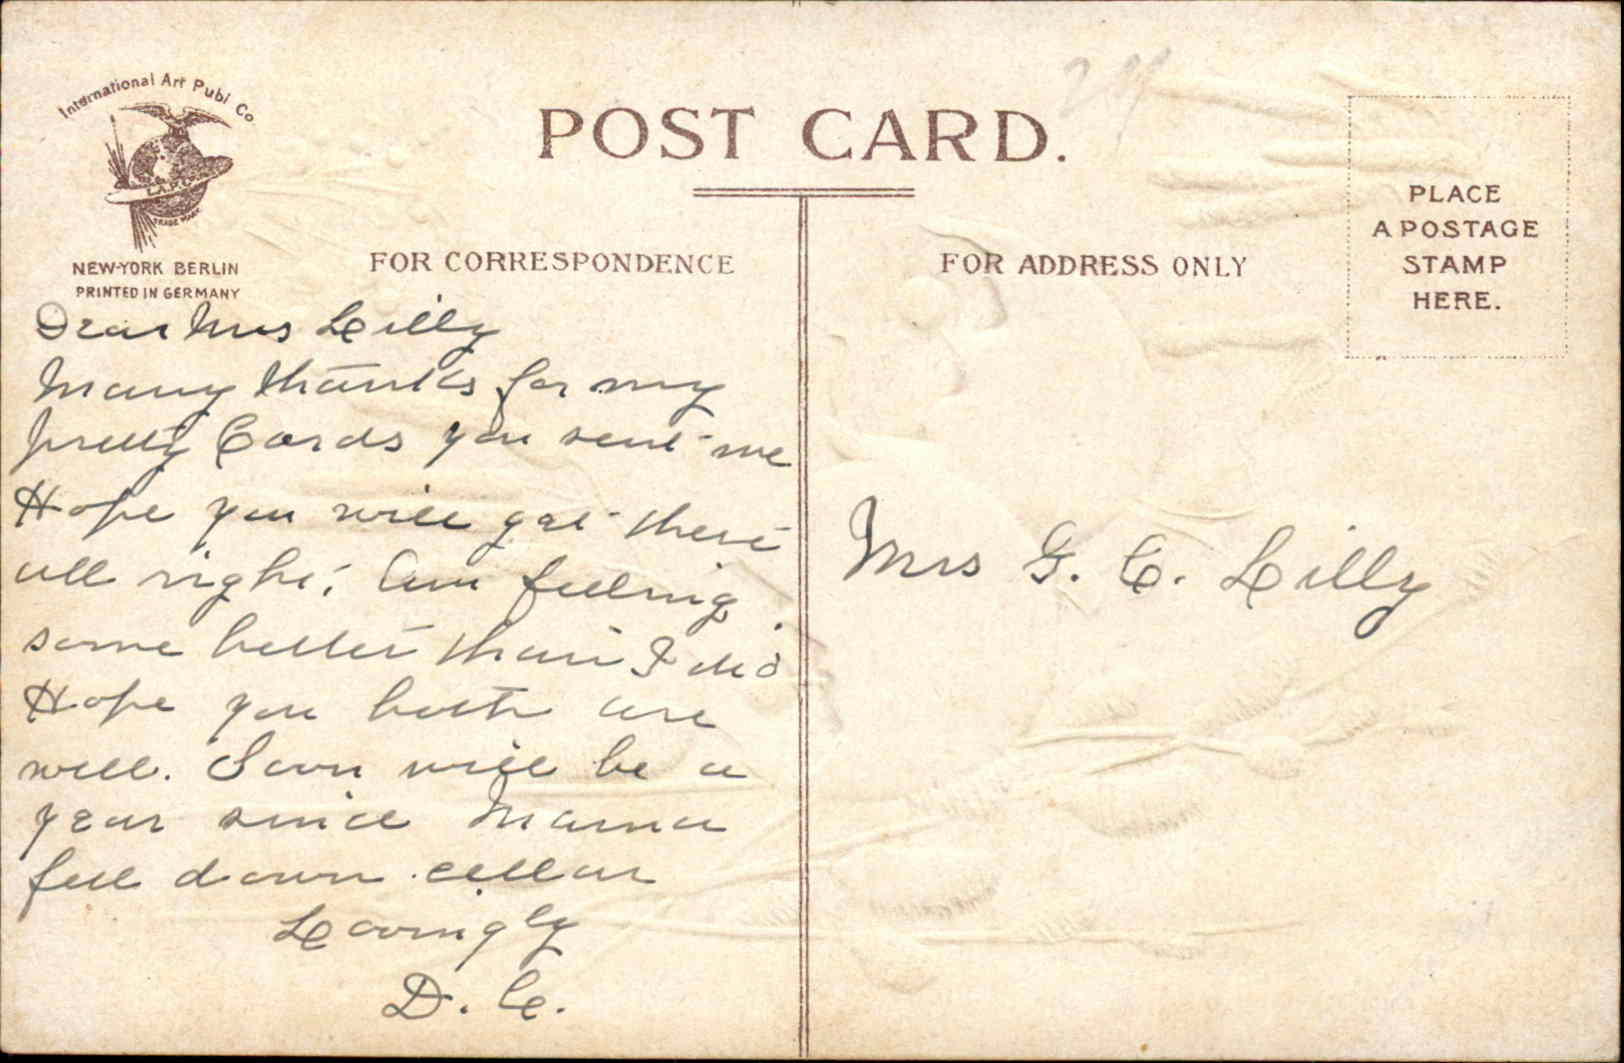 International Art Publ Co
I.A.P.Co
TRADE MARK
NEW-YORK BERLIN
PRINTED IN GERMANY
POST CARD.
FOR CORRESPONDENCE
FOR ADDRESS ONLY
PLACE
A POSTAGE
STAMP
HERE.
Dear Mrs Lilly
Many thanks for my
pretty Cards you sent me
Hope you will get there
all right. Am feeling
some better than I did
Hope you both are
well. Soon will be a
year since Mama
fell down cellar
Lovingly
D. C.
Mrs G. C. Lilly